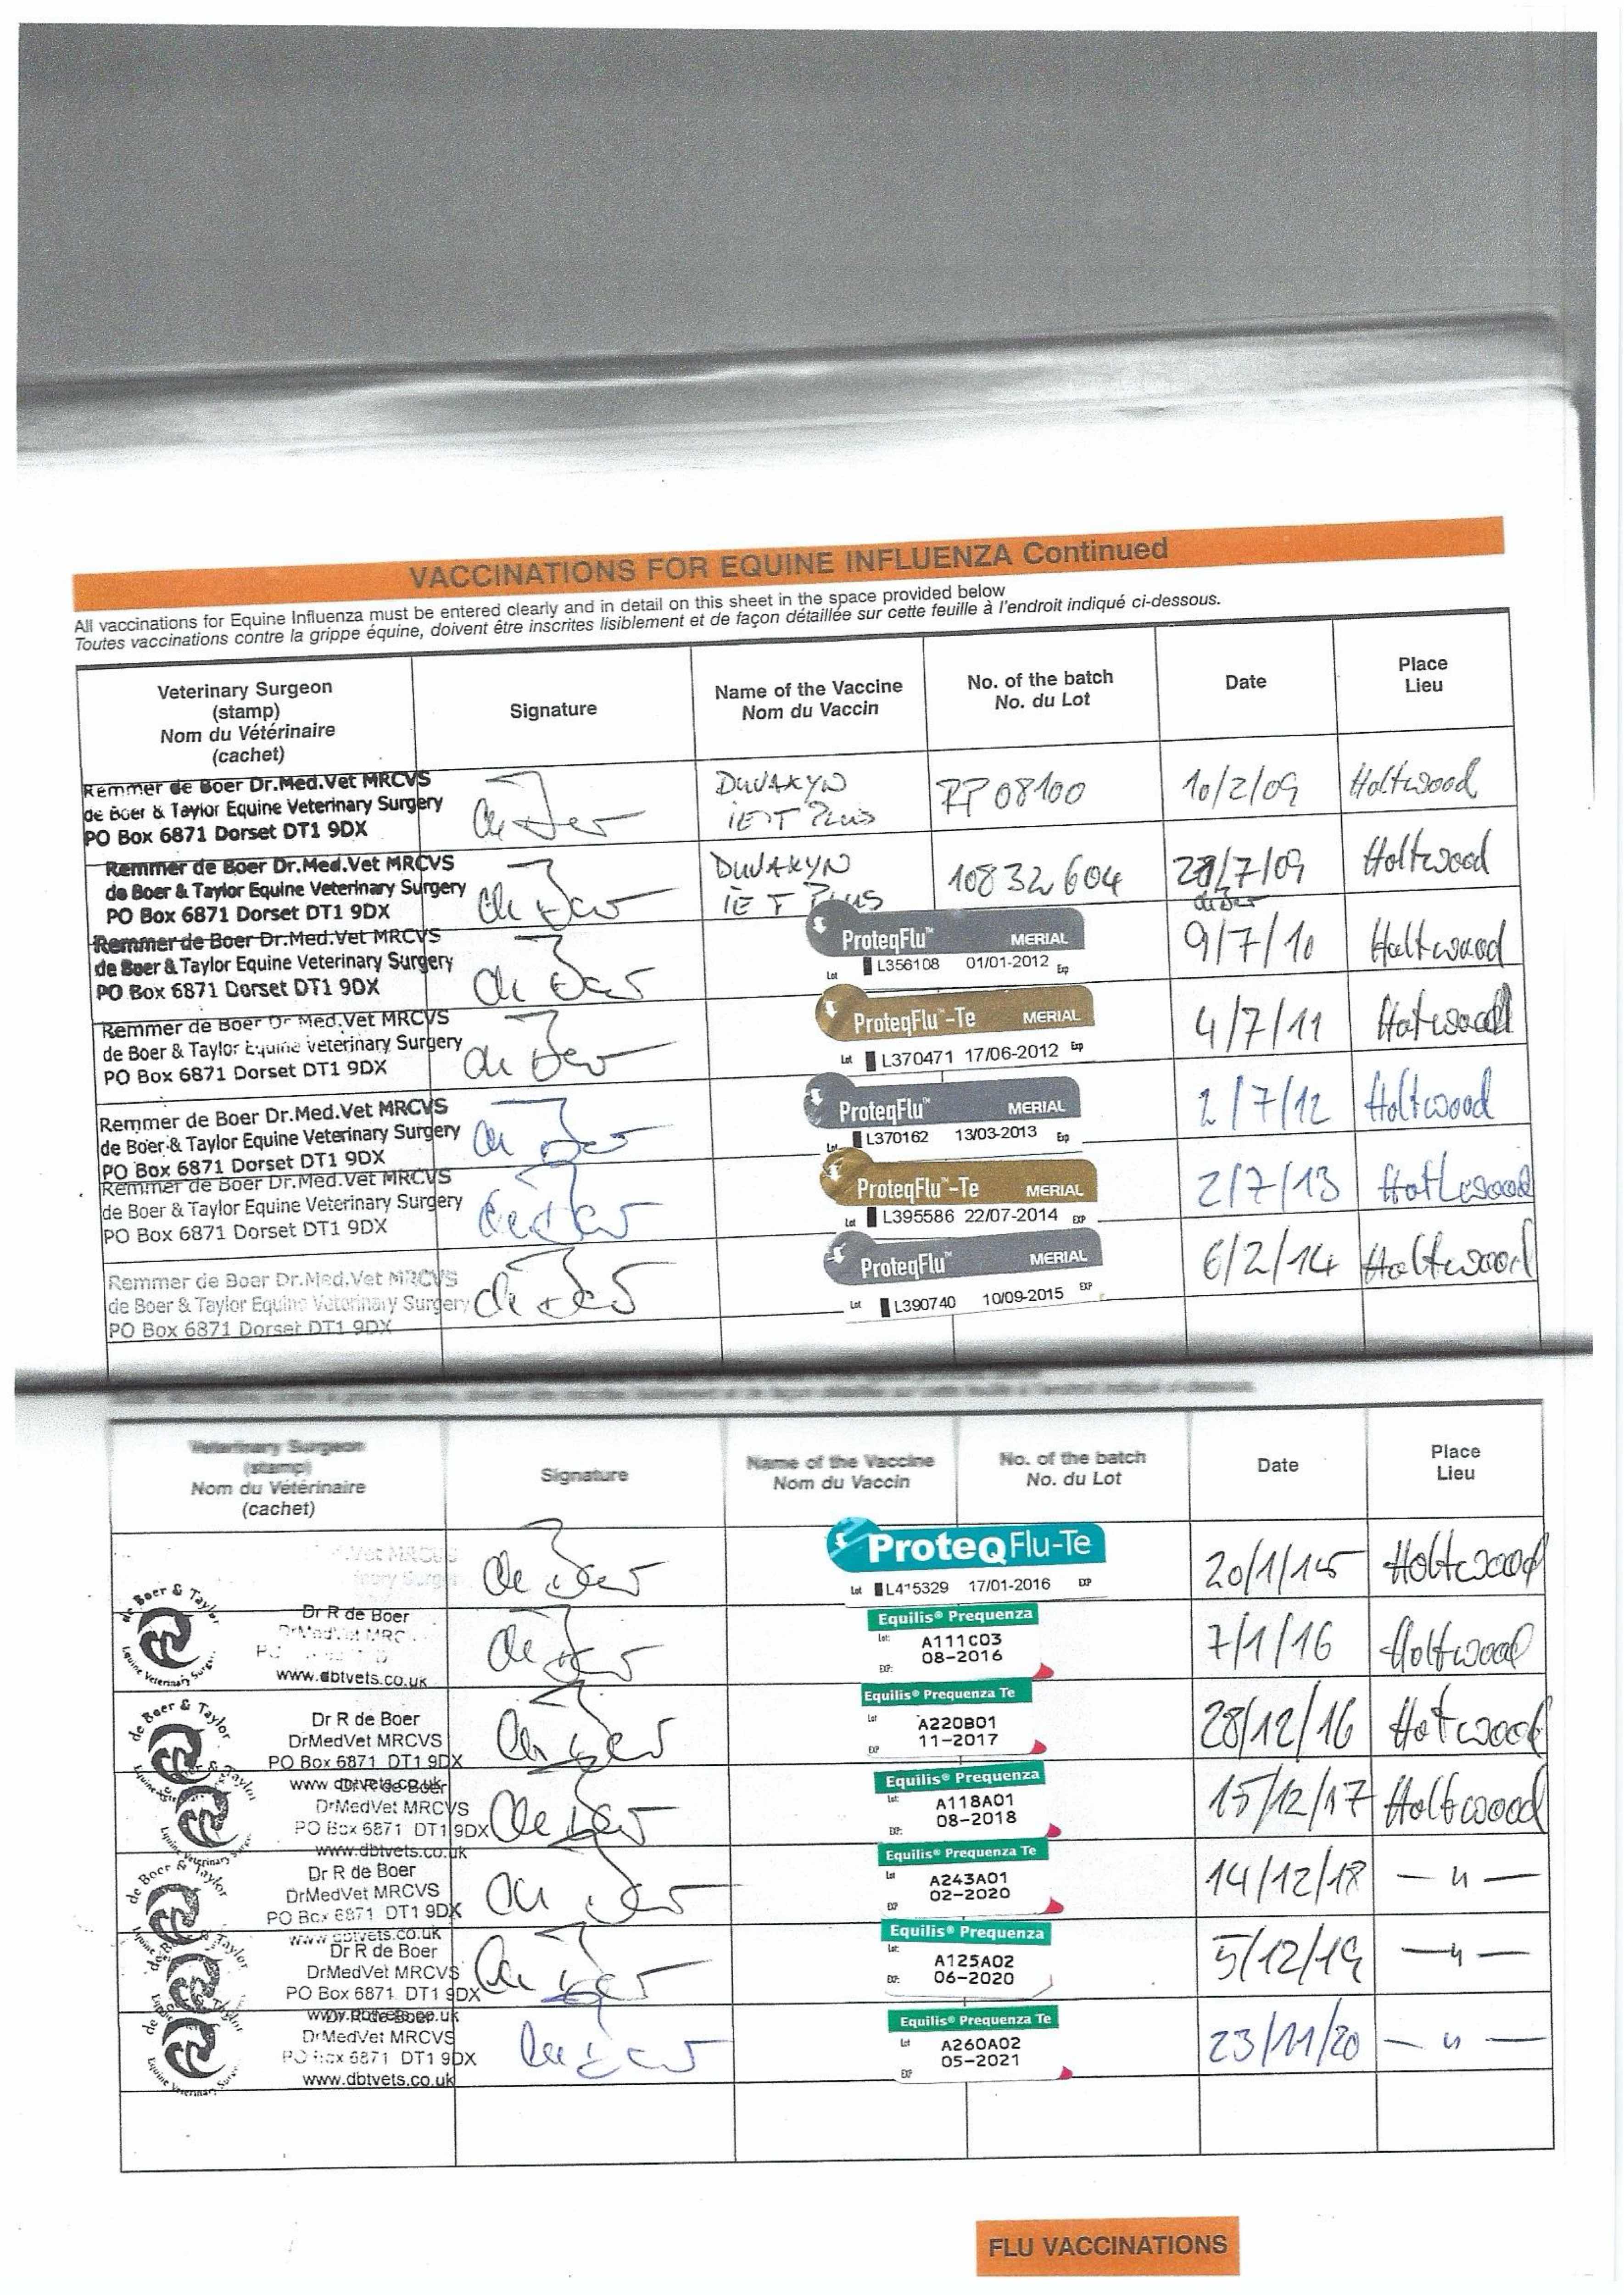 VACCINATIONS FOR EQUINE INFLUENZA Continued
All vaccinations for Equine Influenza must be entered clearly and in detail on this sheet in the space provided below
Toutes vaccinations contre la grippe équine, doivent être inscrites lisiblement et de façon détaillée sur cette feuille à l'endroit indiqué ci-dessous.
Veterinary Surgeon
(stamp)
Nom du Vétérinaire
(cachet)
Signature
Name of the Vaccine
Nom du Vaccin
No. of the batch
No. du Lot
Date
Place
Lieu
Remmer de Boer Dr.Med.Vet MRCVS
de Boer & Taylor Equine Veterinary Surgery
PO Box 6871 Dorset DT1 9DX
DUVAXYN
IE T PLUS
PP08100
10/2/09
Holtwood
Remmer de Boer Dr.Med.Vet MRCVS
de Boer & Taylor Equine Veterinary Surgery
PO Box 6871 Dorset DT1 9DX
DUVAXYN
IE T PLUS
10832604
/7/09
Holtwood
Remmer de Boer Dr.Med.Vet MRCVS
de Boer & Taylor Equine Veterinary Surgery
PO Box 6871 Dorset DT1 9DX
ProteqFlu™ MERIAL
Lot L356108 01/01-2012 Exp
9/7/10
Holtwood
Remmer de Boer Dr Med.Vet MRCVS
de Boer & Taylor Equine Veterinary Surgery
PO Box 6871 Dorset DT1 9DX
ProteqFlu™-Te MERIAL
Lot L370471 17/06-2012 Exp
4/7/11
Hotwood
Remmer de Boer Dr.Med.Vet MRCVS
de Boer & Taylor Equine Veterinary Surgery
PO Box 6871 Dorset DT1 9DX
ProteqFlu™ MERIAL
Lot L370162 13/03-2013 Exp
2/7/12
Holtwood
Remmer de Boer Dr.Med.Vet MRCVS
de Boer & Taylor Equine Veterinary Surgery
PO Box 6871 Dorset DT1 9DX
ProteqFlu™-Te MERIAL
Lot L395586 22/07-2014 EXP
2/7/13
Holtwood
Remmer de Boer Dr.Med.Vet MRCVS
de Boer & Taylor Equine Veterinary Surgery
PO Box 6871 Dorset DT1 9DX
ProteqFlu™ MERIAL
Lot L390740 10/09-2015 EXP
6/2/14
Holtwood
Veterinary Surgeon
(stamp)
Nom du Vétérinaire
(cachet)
Signature
Name of the Vaccine
Nom du Vaccin
No. of the batch
No. du Lot
Date
Place
Lieu
Vet MRCVS
ProteqFlu-Te
Lot L415329 17/01-2016 EXP
20/1/15
Holtwood
de Boer & Taylor
Equine Veterinary Surgery
Dr R de Boer
DrMedVet MRC
www.dbtvets.co.uk
Equilis® Prequenza
Lot: A111C03
EXP: 08-2016
7/1/16
Holtwood
de Boer & Taylor
Dr R de Boer
DrMedVet MRCVS
PO Box 6871 DT1 9DX
www dbtvets.co.uk
Equilis® Prequenza Te
Lot A220B01
EXP 11-2017
28/12/16
Hotwood
Dr R de Boer
DrMedVet MRCVS
PO Box 6871 DT1 9DX
www.dbtvets.co.uk
Equilis® Prequenza
Lot: A118A01
EXP: 08-2018
15/12/17
Holtwood
de Boer & Taylor
Dr R de Boer
DrMedVet MRCVS
PO Box 6871 DT1 9DX
www dbtvets.co.uk
Equilis® Prequenza Te
Lot A243A01
EXP 02-2020
14/12/18
— " —
Dr R de Boer
DrMedVet MRCVS
PO Box 6871 DT1 9DX
www.dbtvets.co.uk
Equilis® Prequenza
Lot: A125A02
EXP: 06-2020
5/12/19
— " —
Dr R de Boer
DrMedVet MRCVS
PO Box 6871 DT1 9DX
www.dbtvets.co.uk
Equilis® Prequenza Te
Lot A260A02
EXP 05-2021
23/11/20
— " —
FLU VACCINATIONS